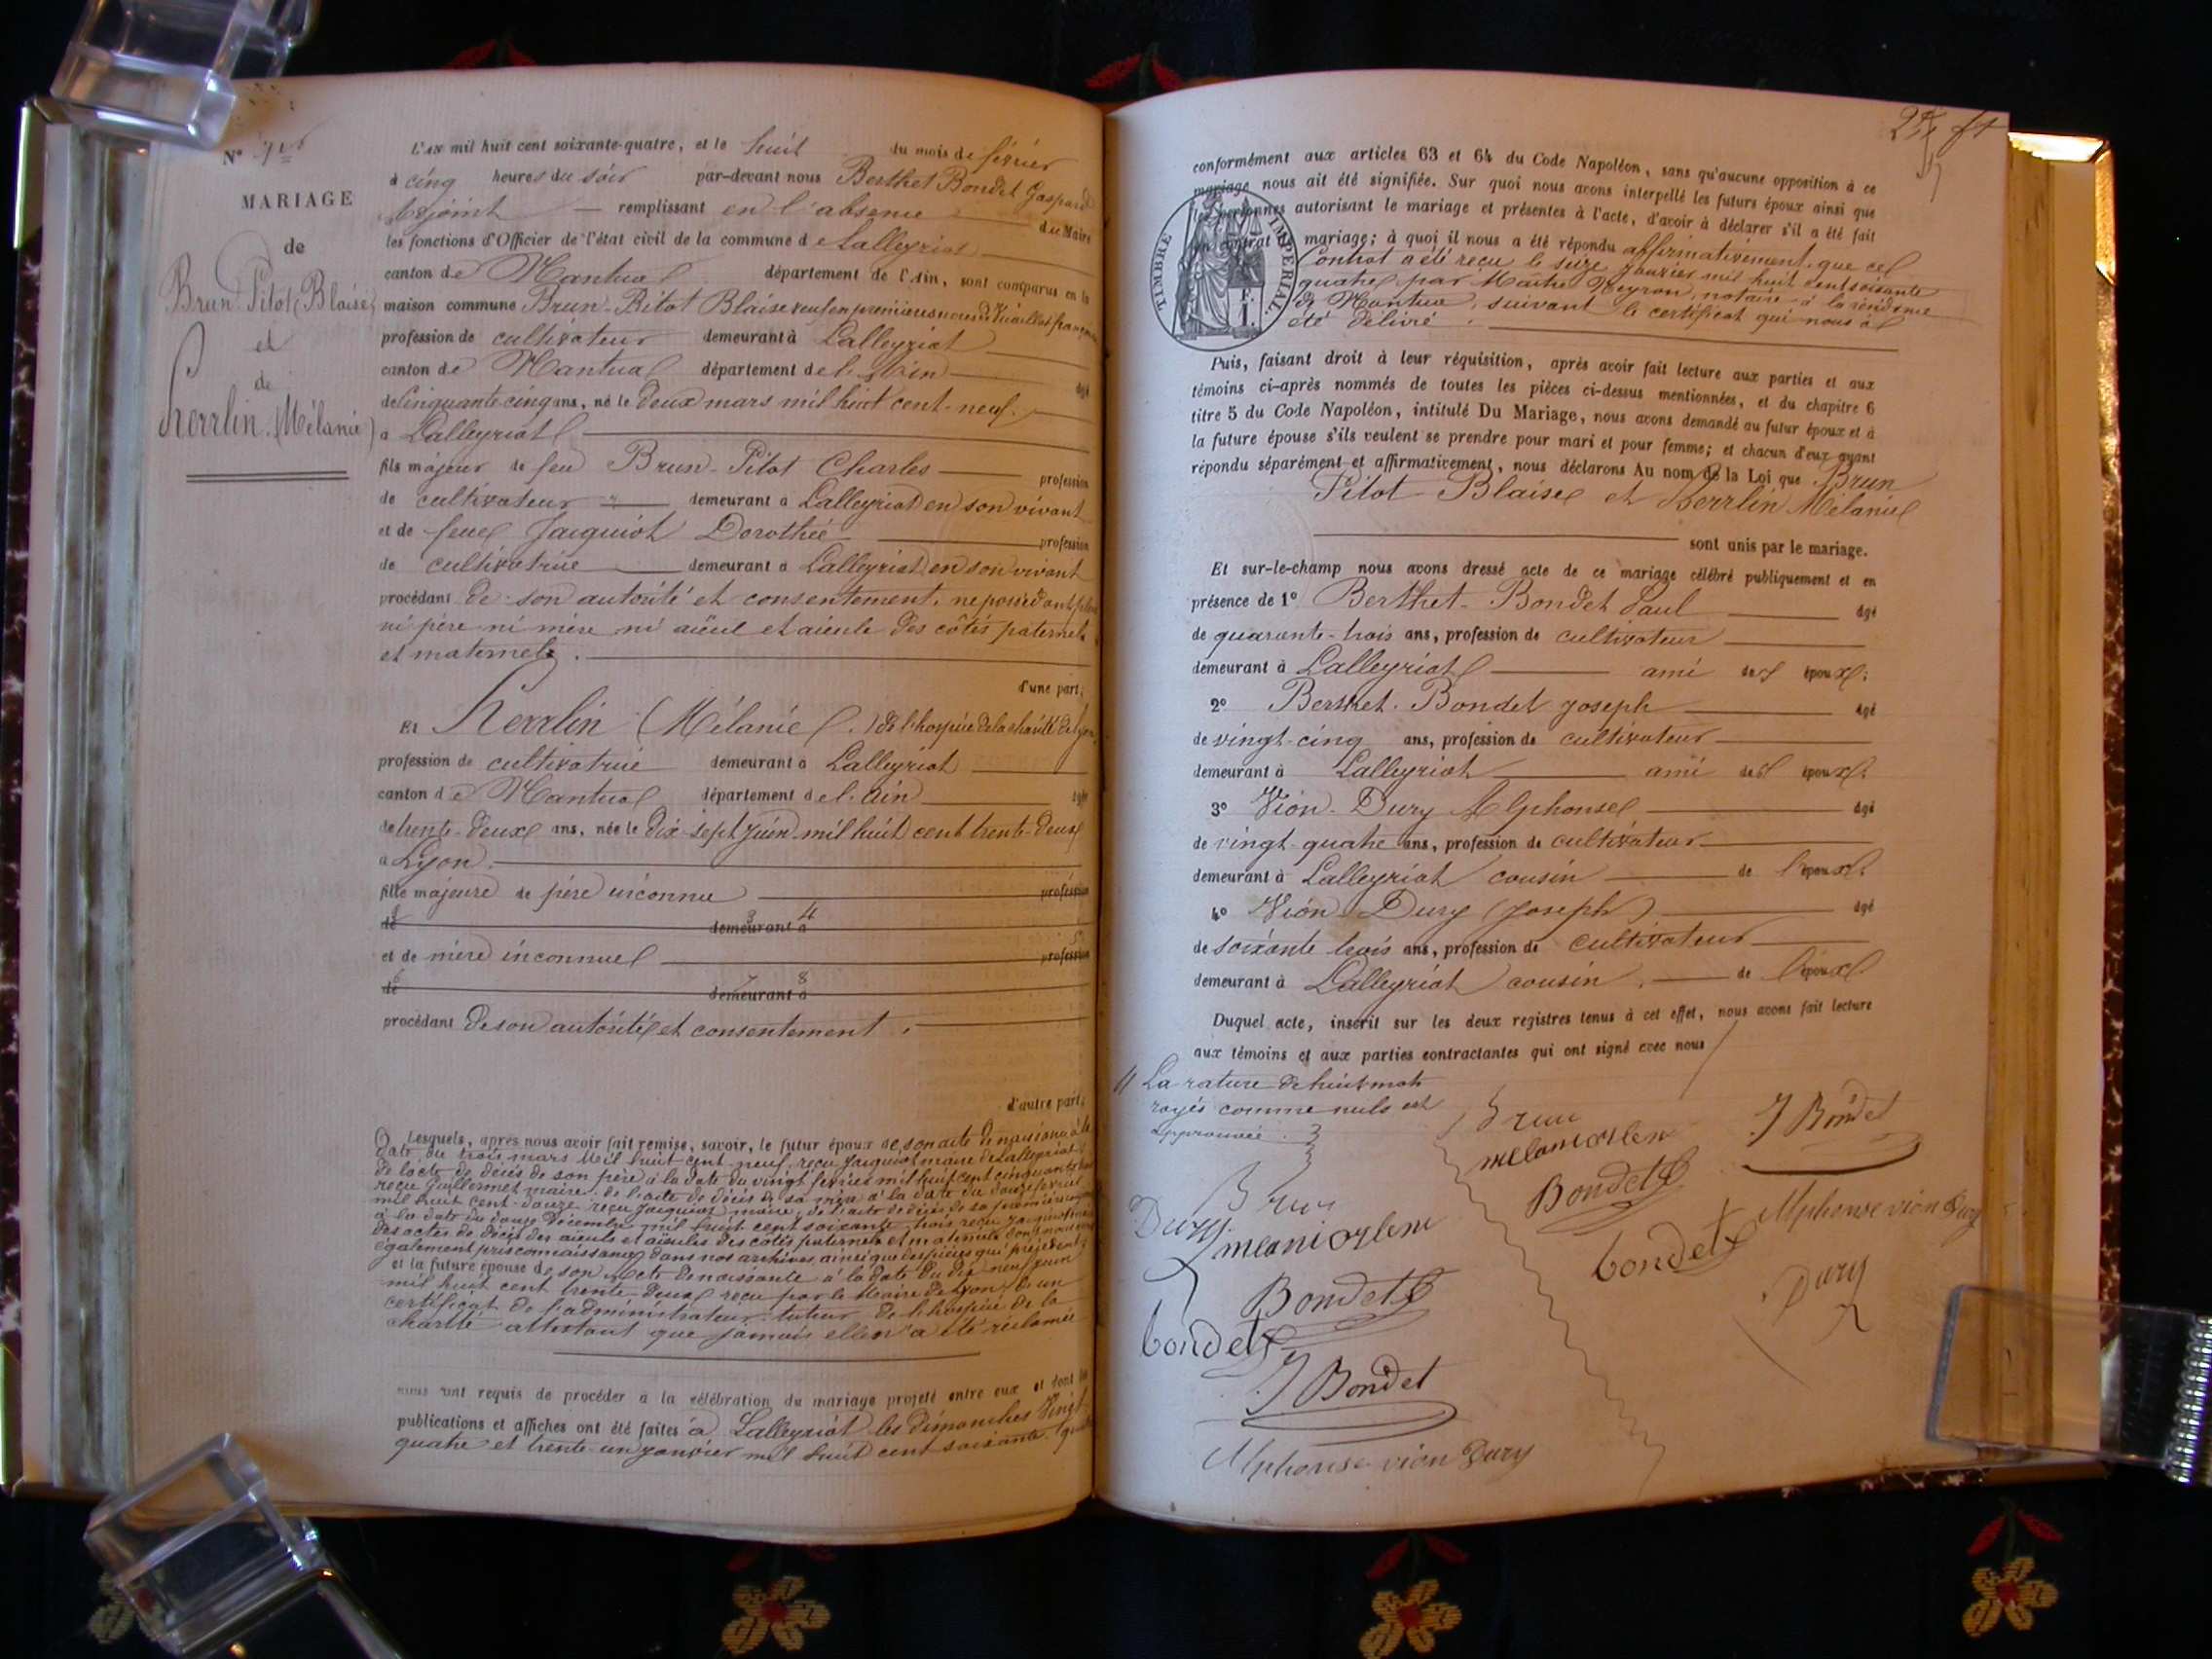 N°
MARIAGE
de
Brun-Pitot (Blaise)
et
de
Herrlin (Mélanie)
L'AN mil huit cent soixante-quatre, et le huit du mois de février
à cinq heures du soir par-devant nous Berthet Bondet Gaspard
adjoint remplissant en l'absence du Maire
les fonctions d'Officier de l'état civil de la commune de Lalleyriat
canton de Nantua département de l'Ain, sont comparus en la
maison commune Brun-Pitot Blaise veuf en premières noces
profession de cultivateur demeurant à Lalleyriat
canton de Nantua département de l'Ain âgé
de cinquante cinq ans, né le deux mars mil huit cent neuf
à Lalleyriat
fils majeur de feu Brun-Pitot Charles profession
de cultivateur demeurant à Lalleyriat en son vivant
et de feue Jacquiot Dorothée profession
de cultivatrice demeurant à Lalleyriat en son vivant
procédant de son autorité et consentement, ne possédant plus
ni père ni mère ni aïeul et aïeule des côtés paternels
et maternels.
d'une part;
Et Herrlin (Mélanie) de l'hospice de la charité de Lyon
profession de cultivatrice demeurant à Lalleyriat
canton de Nantua département de l'Ain âgée
de trente-deux ans, née le dix-sept juin mil huit cent trente-deux
à Lyon
fille majeure de père inconnu profession
de demeurant à
et de mère inconnue profession
de demeurant à
procédant de son autorité et consentement.
d'autre part;
Lesquels, après nous avoir fait remise, savoir, le futur époux de son acte de naissance à la
date du trois mars mil huit cent neuf, reçu Jacquiot maire de Lalleyriat
de l'acte de décès de son père à la date du vingt février mil huit cent cinquante
reçu Guillermet maire, de l'acte de décès de sa mère à la date du douze février
mil huit cent douze reçu Jacquiot maire, de l'acte de décès de sa première
à la date du douze décembre mil huit cent soixante trois reçu Jacquiot
des actes de décès des aïeuls et aïeules des côtés paternels et maternels dont nous avons
également pris connaissance dans nos archives ainsi que des pièces qui précèdent;
et la future épouse de son acte de naissance à la date du dix neuf juin
mil huit cent trente-deux reçu par le Maire de Lyon, d'un
certificat de l'administrateur-tuteur de l'hospice de la
charité attestant que jamais elle n'a été réclamée
nous ont requis de procéder à la célébration du mariage projeté entre eux et dont les
publications et affiches ont été faites à Lalleyriat les dimanches vingt-
quatre et trente-un janvier mil huit cent soixante-quatre
conformément aux articles 63 et 64 du Code Napoléon, sans qu'aucune opposition à ce
mariage nous ait été signifiée. Sur quoi nous avons interpellé les futurs époux ainsi que
les personnes autorisant le mariage et présentes à l'acte, d'avoir à déclarer s'il a été fait
un contrat de mariage; à quoi il nous a été répondu affirmativement, que cel
Contrat a été reçu le seize janvier mil huit cent soixante
quatre par Maître Reyron, notaire à la résidence
de Nantua, suivant le certificat qui nous a
été délivré.
TIMBRE IMPERIAL.
1 F.
Puis, faisant droit à leur réquisition, après avoir fait lecture aux parties et aux
témoins ci-après nommés de toutes les pièces ci-dessus mentionnées, et du chapitre 6
titre 5 du Code Napoléon, intitulé Du Mariage, nous avons demandé au futur époux et à
la future épouse s'ils veulent se prendre pour mari et pour femme; et chacun d'eux ayant
répondu séparément et affirmativement, nous déclarons Au nom de la Loi que Brun
Pitot Blaise et Herrlin Mélanie
sont unis par le mariage.
Et sur-le-champ nous avons dressé acte de ce mariage célébré publiquement et en
présence de 1° Berthet-Bondet Paul âgé
de quarante-trois ans, profession de cultivateur
demeurant à Lalleyriat ami des époux;
2° Berthet-Bondet Joseph âgé
de vingt-cinq ans, profession de cultivateur
demeurant à Lalleyriat ami des époux;
3° Vion-Dury Alphonse âgé
de vingt-quatre ans, profession de cultivateur
demeurant à Lalleyriat cousin de l'époux;
4° Vion-Dury (Joseph) âgé
de soixante trois ans, profession de cultivateur
demeurant à Lalleyriat cousin de l'époux
Duquel acte, inscrit sur les deux registres tenus à cet effet, nous avons fait lecture
aux témoins et aux parties contractantes qui ont signé avec nous
La rature de huit mots
rayés comme nuls est
approuvée.
Brun
J Bondet
Bondet
Alphonse vion Dury
Brun
Dury
bondet
Dury
Bondet
bondet
J Bondet
Alphonse vion Dury